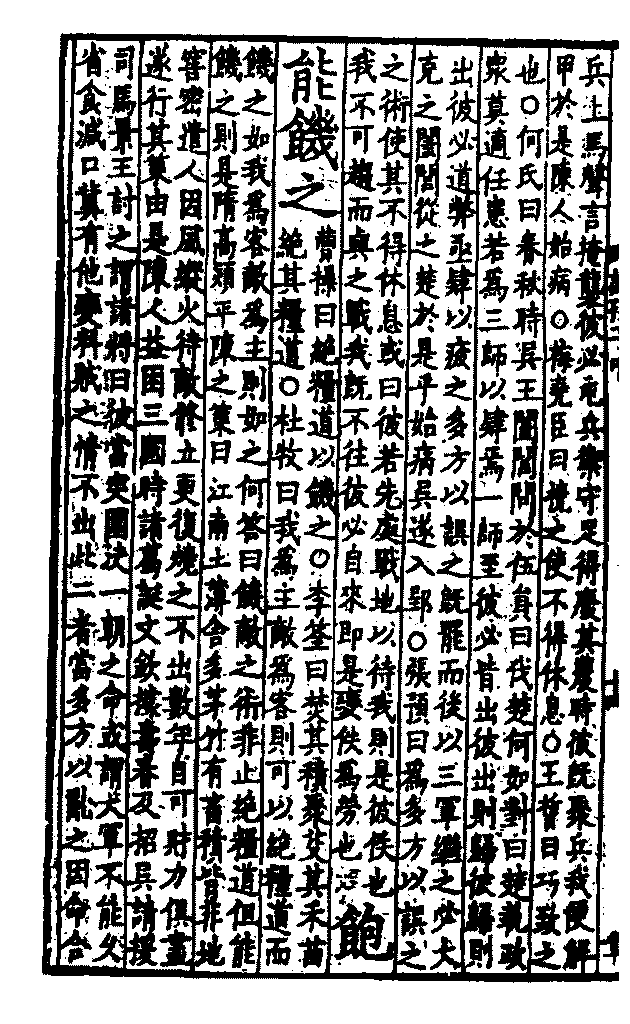 兵上馬聲言掩襲彼必屯兵禦守足得廢其農時彼既聚兵我便解
甲於是陳人始病○梅堯臣曰撓之使不得休息○王晳曰巧致之
也○何氏曰春秋時吳王闔閭問於伍員曰伐楚何如對曰楚執政
衆莫適任患若為三師以肄焉一師至彼必皆出彼出則歸彼歸則
出彼必道弊亟肄以疲之多方以誤之既罷而後以三軍繼之必大
克之闔閭從之楚於是乎始病吳遂入郢○張預曰為多方以誤之
之術使其不得休息或曰彼若先處戰地以待我則是彼佚也
我不可趨而與之戰我既不往彼必自來即是變佚為勞也
飽
能饑之
曹操曰絕糧道以饑之○李筌曰焚其積聚芟其禾苗
絕其糧道○杜牧曰我為主敵為客則可以絕糧道而
饑之如我為客敵為主則如之何答曰饑敵之術非止絕糧道但能
饑之則是隋高熲平陳之策曰江南土薄舍多茅竹有畜積皆非地
窖密遣人因風縱火待敵修立更復燒之不出數年自可財力俱盡
遂行其策由是陳人益困三國時諸葛誕文欽據壽春及招吳請援
司馬景王討之謂諸將曰彼當突圍決一朝之命或謂大軍不能久
省食減口冀有他變料賊之情不出此二者當多方以亂之因命合